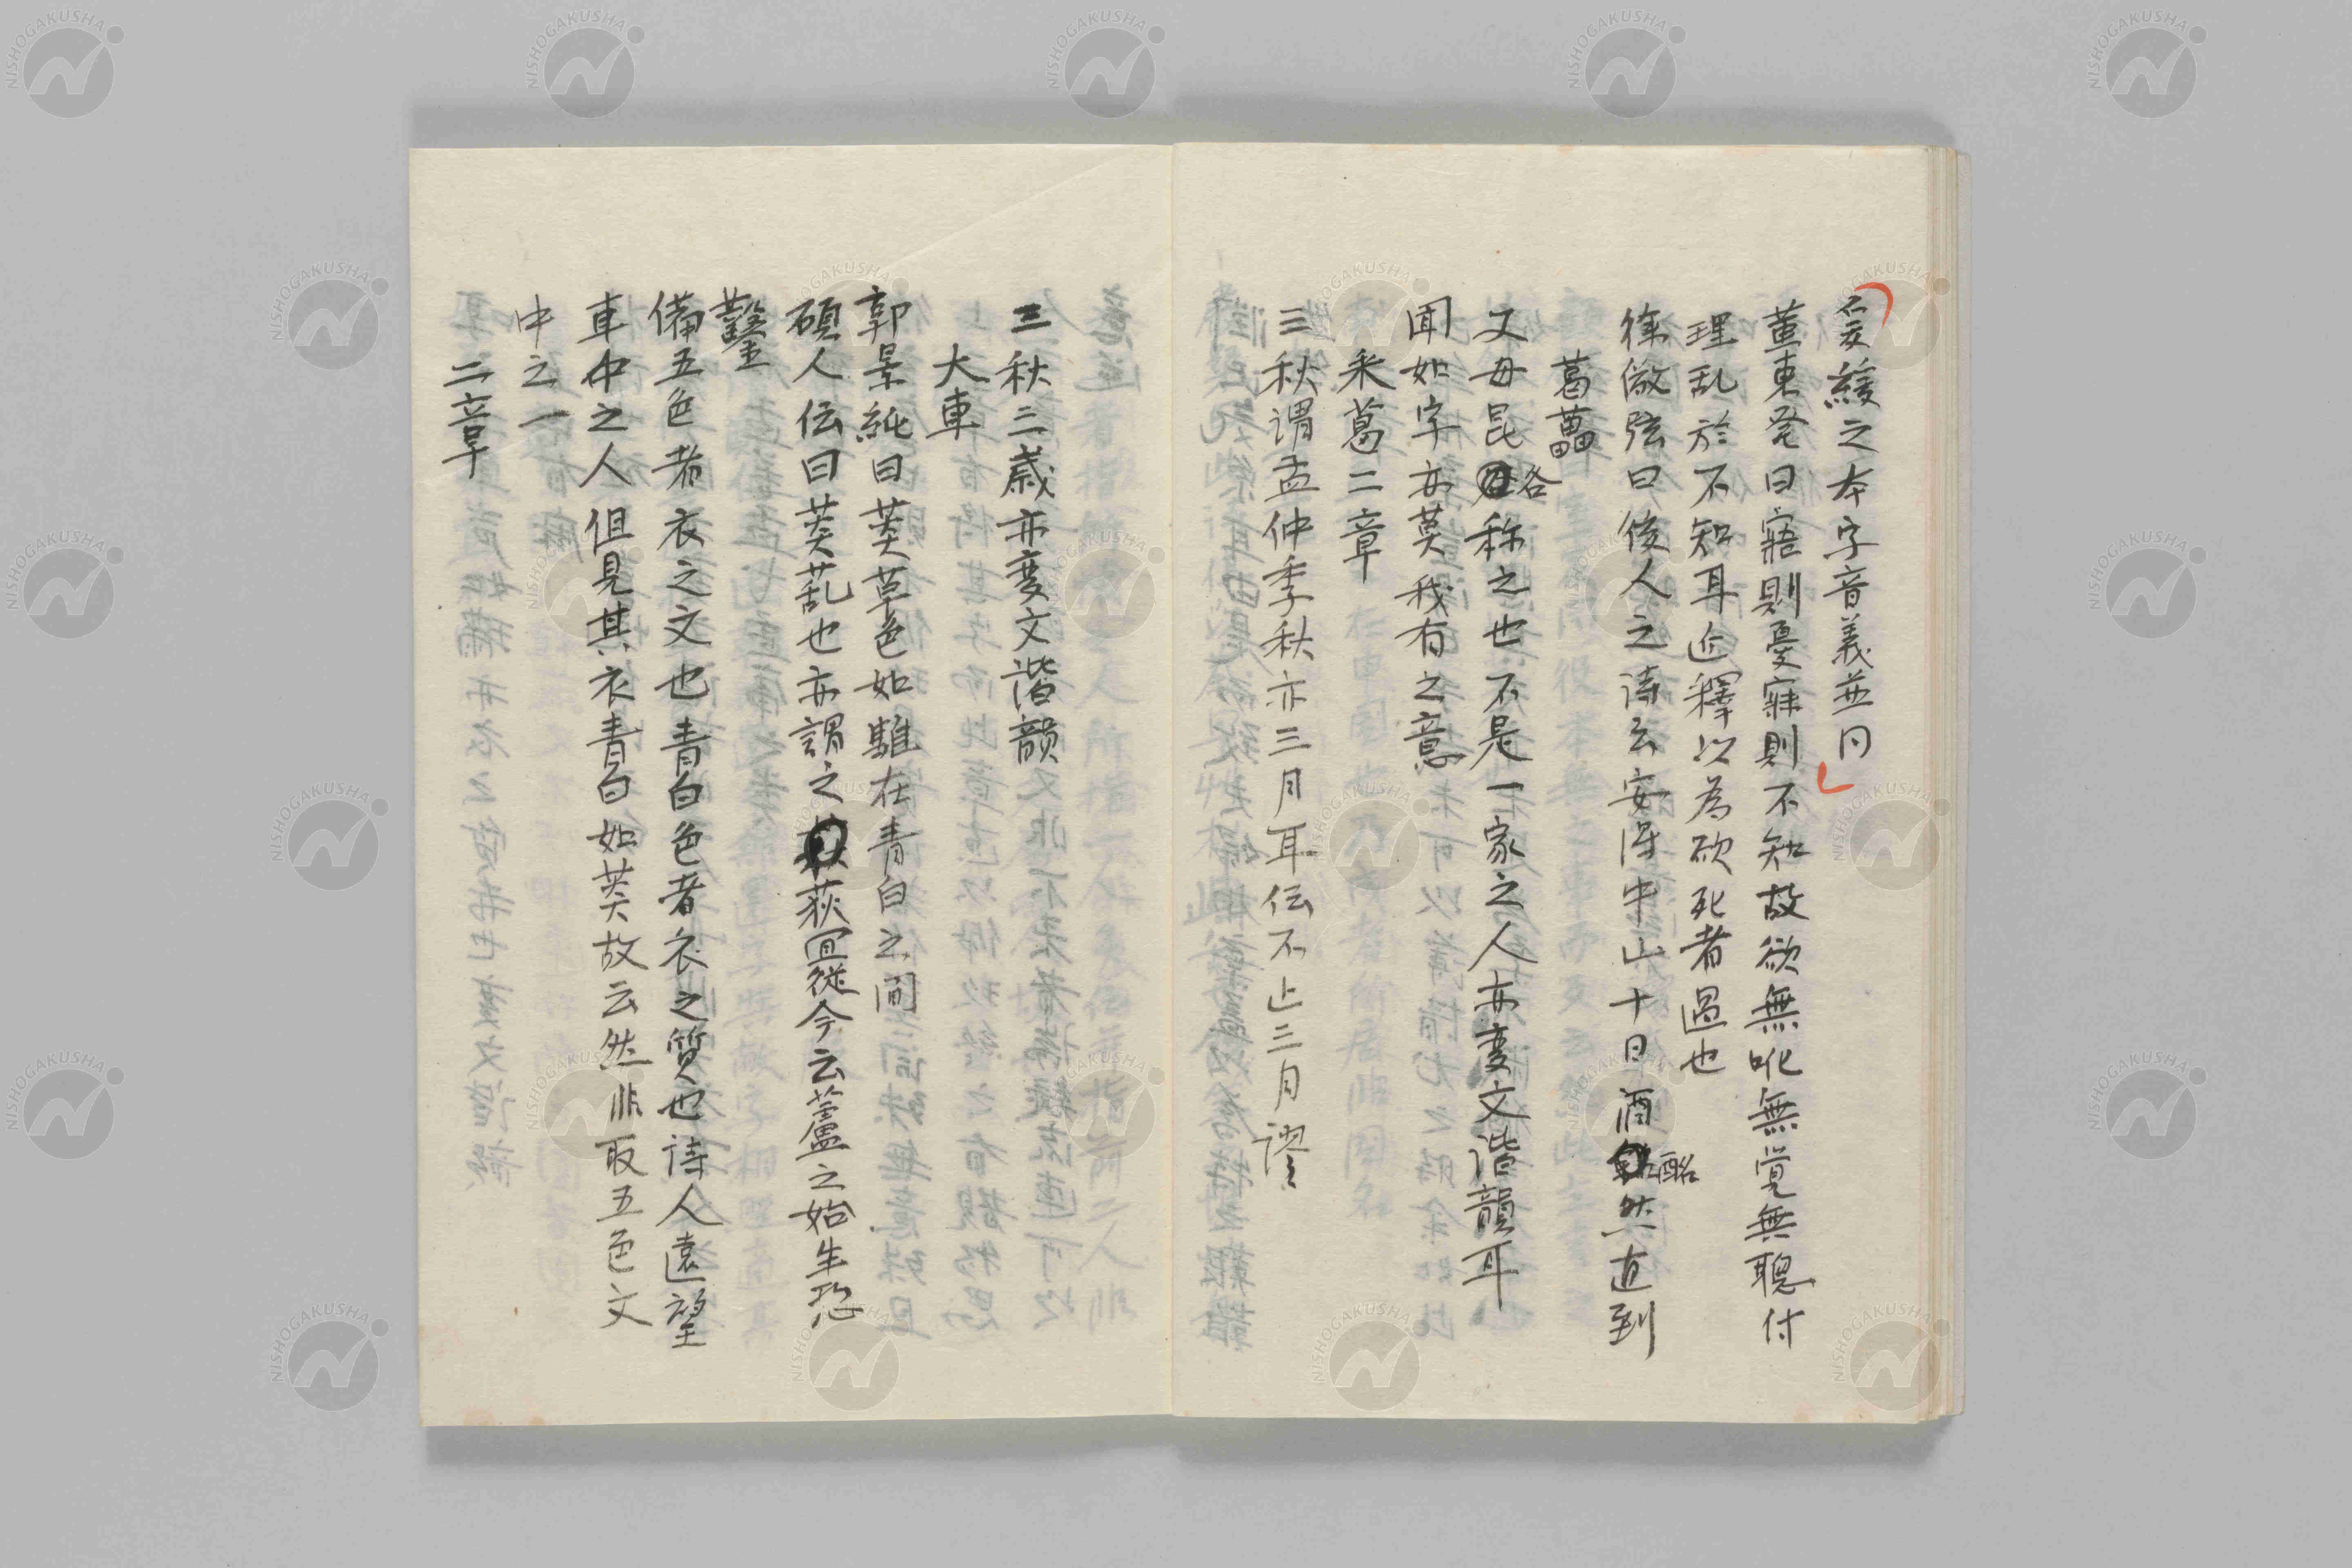 爰緩之本字音義並同
董東発曰寤則憂寐則不知故欲無吪無覚無聰付
理乱於不知耳近釈以為欲死者過也
徐儆弦曰後人之诗云安得中山十日酒酩然直到
葛藟
父母昆各称之也不是一家之人亦変文谐韻耳
聞如字亦莫我有之意
采葛二章
三秋谓孟仲季秋亦三月耳伝不止三月謬
三秋三歳亦変文谐韻
大車
郭景純曰菼草色如騅在青白之間
碩人伝曰菼薍也亦謂之荻冝從今云蘆之始生恐
鑿
備五色者衣之文也青白色者衣之質也诗人遠望
車中之人但見其衣青白如菼故云然非取五色文
中之一
二章
NISHOGAKUSHA